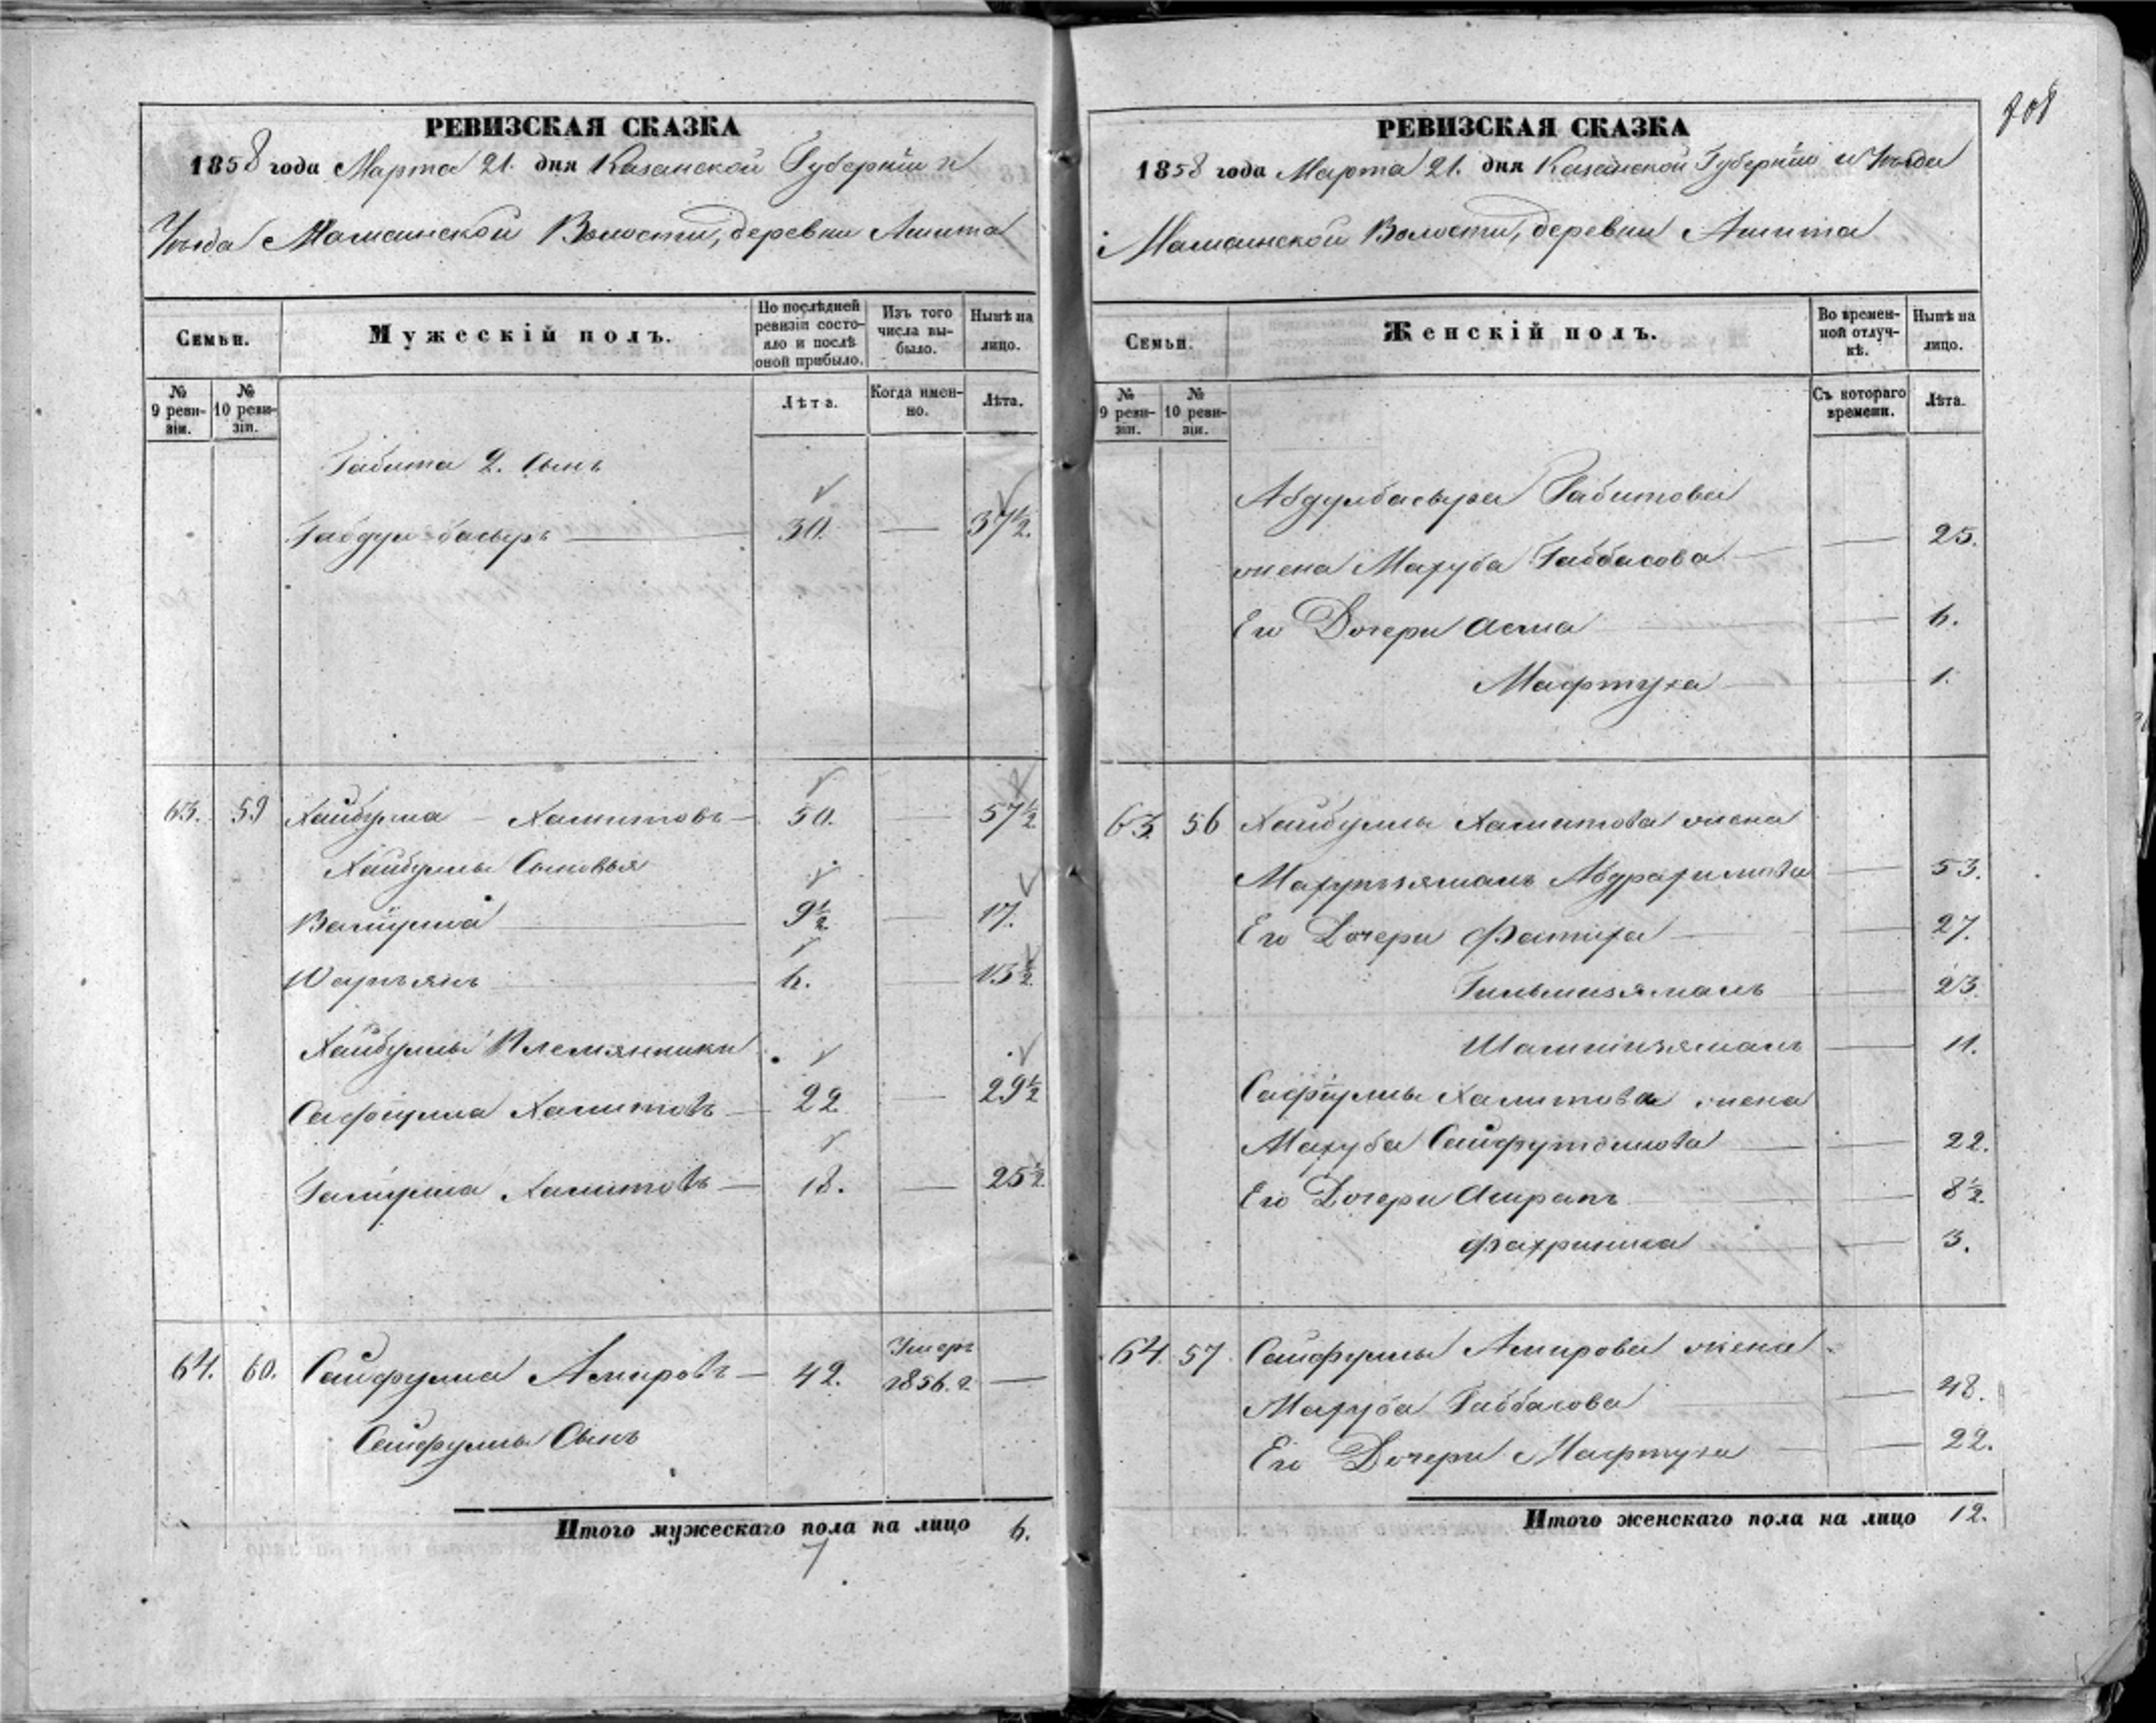 РЕВИЗСКАЯ СКАЗКА
1858 года Марта 21. дня Казанской Губерніи и
Уѣзда Мамсинской Волости, деревни Ашита
Семьи.
Мужескій полъ.
По послѣдней ревизіи состояло и послѣ оной прибыло.
Изъ того числа выбыло.
Нынѣ на лицо.
№ 9 ревизіи.
№ 10 ревизіи.
Лѣта.
Когда именно.
Лѣта.
Габита 2. Сынъ
Габдулбасыръ 30. — 37½.
63. 59 Хайбулла Хамитовъ 50. — 57½
Хайбуллы Сыновья
Валіулла 9½ — 17.
Шарпъянъ 6. — 13½
Хайбуллы Племянники
Сафіулла Хамитовъ 22 — 29½
Галіулла Хамитовъ 18. — 25½
64. 60. Сайфулла Амировъ 42. Умеръ 1856. г. —
Сайфуллы Сынъ
Итого мужескаго пола на лицо 6.
7
208
РЕВИЗСКАЯ СКАЗКА
1858 года Марта 21. дня Казанской Губерніи и Уѣзда
Мамсинской Волости, деревни Ашита
Семьи.
Женскій полъ.
Во временной отлучкѣ.
Нынѣ на лицо.
№ 9 ревизіи.
№ 10 ревизіи.
Съ котораго времени.
Лѣта.
Абдулбасыра Габитова
жена Махуба Габбасова — 25.
Его Дочери Асма — 6.
Мафтуха — 1.
63 56 Хайбуллы Хамитова жена
Махупзямалъ Абдрахимова — 53.
Его Дочери Фатиха — 27.
Гильмизямалъ — 23.
Шамшизямалъ — 11.
Сафіуллы Хамитова жена
Махуба Сайфутдинова — 22.
Его Дочери Ашрапъ — 8½.
Фахриниса — 3.
64. 57. Сайфуллы Амирова жена
Махуба Габбасова — 48.
Его Дочери Мафтуха — 22.
Итого женскаго пола на лицо 12.